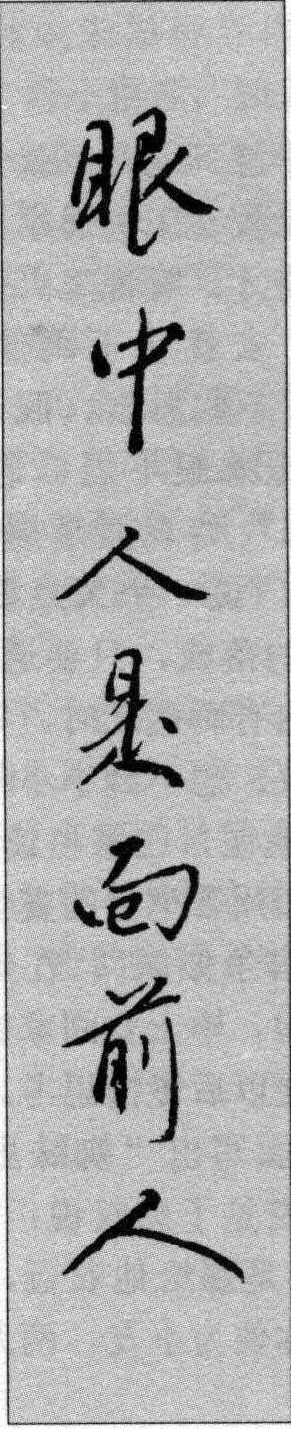 眼中人是面前人